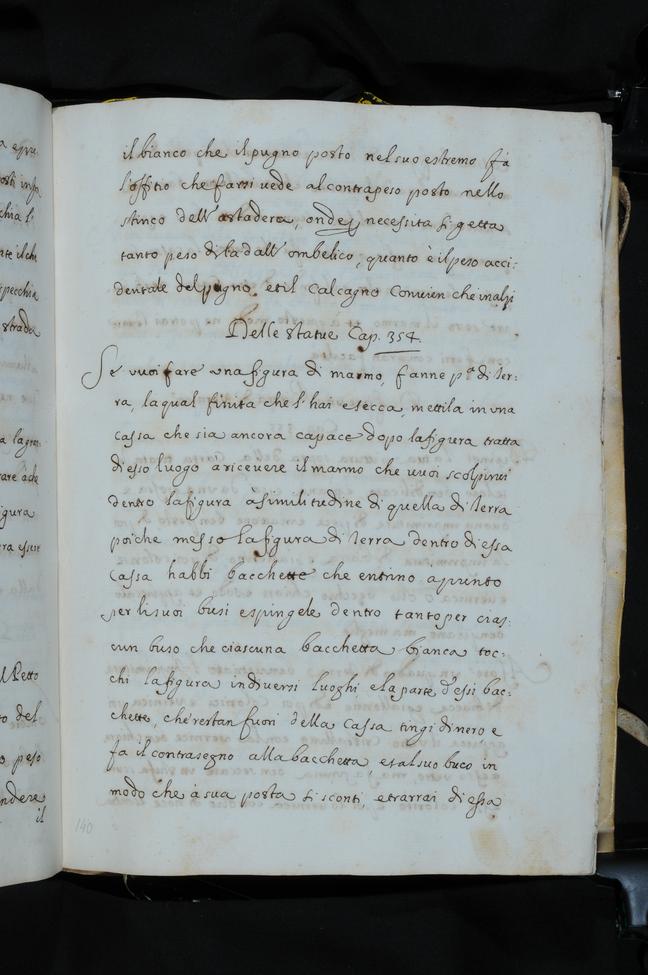 a
posti in
chia l'
te il ch
specchia
strada
a la
rare à che
igura
era essere
l Petto
to del
o peso
ndere
il
il bianco che il pugno posto nel suo estremo fà
l'offitio che farsi uede al contrapeso posto nello
stinco dell' astadera, onde necessita si getta
tanto peso di la dall' ombelico, quanto è il peso acci:
dentale del pugno, et il calcagno conuien che inalzi
Delle statue Cap. 354.
Se uuoi fare una figura di marmo, fanne p.ª di ter:
ra, la qual finita che l' hai e secca, mettila in una
cassa che sia ancora capace dopo la figura tratta
di esso luogo a riceuere il marmo che uuoi scolpirui
dentro la figura a similitudine di quella di terra
poi che messo la figura di terra dentro di essa
cassa habbi bacchette che entino apunto
per li suoi busi e spingele dentro tanto per cias:
cun buso che ciascuna bacchetta bianca toc:
chi la figura in diuersi luoghi, e la parte d'esse bac:
chette, che restan fuori della cassa tingi di nero e
fà il contrasegno alla bacchetta, et al suo buco in
modo che à sua posta si sconti, e trarrai di essa
140